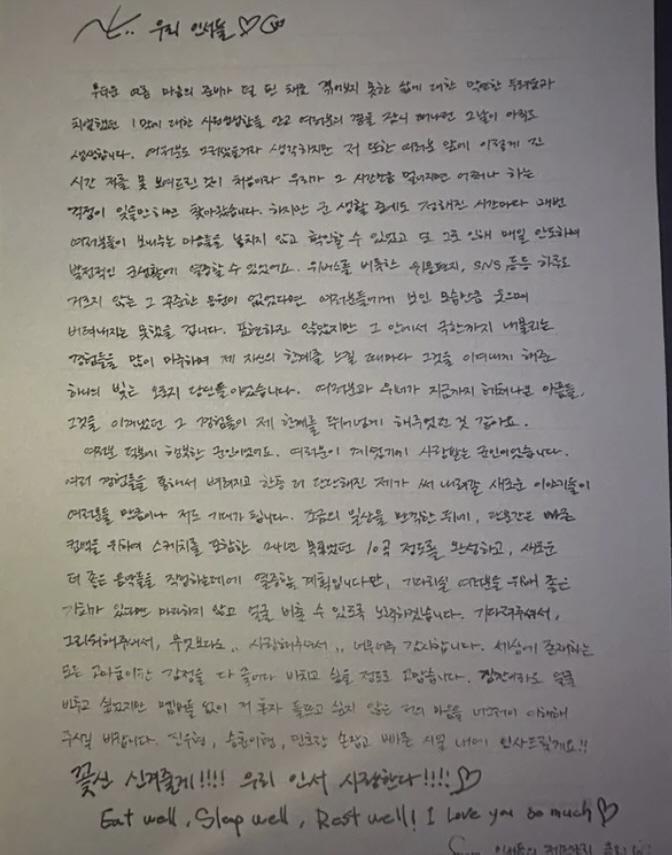 우리 인서들♡
무더운 여름 마음의 준비가 덜 된 채로 겪어보지 못한 삶에 대한 막연한 두려움과
치열했던 1막에 대한 시원섭섭함을 안고 여러분의 곁을 잠시 떠나던 그날이 아직도
생생합니다. 여러분도 그러셨을거라 생각하지만 저 또한 여러분 앞에 이렇게 긴
시간 저를 못 보여드린 것이 처음이라 우리가 그 시간만큼 멀어지면 어쩌나 하는
걱정이 잊을만하면 찾아왔습니다. 하지만 군 생활 중에도 정해진 시간마다 매번
여러분들이 보내주는 마음들을 놓치지 않고 확인할 수 있었고 또 그로 인해 매일 안도하며
발전적인 군생활에 열중할 수 있었어요. 위버스를 비롯한 위문편지, SNS 등등 하루도
거르지 않는 그 꾸준한 응원이 없었다면 여러분들에게 보인 모습만큼 웃으며
버텨내지는 못했을 겁니다. 표현하진 않았지만 그 안에서 극한까지 내몰리는
경험들을 많이 마주하며 제 자신의 한계를 느낄 때마다 그것을 이겨내게 해준
하나의 빛은 오로지 당신들이었습니다. 여러분과 우리가 지금까지 헤쳐나온 아픔들,
그것을 이겨냈던 그 경험들이 제 한계를 뛰어넘게 해주었던 것 같아요.
여러분 덕분에 행복한 군인이었어요. 여러분이 계셨기에 사랑받는 군인이었습니다.
여러 경험들을 통해서 벼려지고 한층 더 단단해진 제가 써 내려갈 새로운 이야기들이
여러분들 만큼이나 저도 기대가 됩니다. 조금의 일상을 만끽한 뒤에, 한동안은 빠른
컴백을 위하여 스케치를 포함한 24년 목표였던 10곡 정도를 완성하고, 새로운
더 좋은 음악들을 작업하는데에 열중할 계획입니다만, 기다리실 여러분을 위해 좋은
기회가 있다면 마다하지 않고 얼굴 비출 수 있도록 노력하겠습니다. 기다려주셔서,
그리워해주셔서, 무엇보다도.. 사랑해주셔서.. 너무너무 감사합니다. 세상에 존재하는
모든 고마움이란 감정을 다 끌어다 바치고 싶을 정도로 고맙습니다. 잠깐이라도 얼굴
비추고 싶었지만 멤버들 없이 저 혼자 들뜨고 싶지 않은 저의 마음을 너그러이 이해해
주시길 바랍니다. 진우형, 승훈이형, 민호랑 손잡고 빠른 시일 내에 인사드릴게요!!
꽃신 신겨줄게!!!! 우리 인서 사랑한다!!!!♡
Eat well, Sleep well, Rest well! I love you so much♡
인서들의